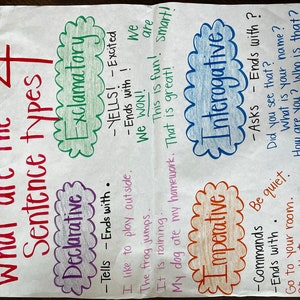 What are the 4
Sentence types?
Declarative
- Tells - Ends with .
I like to play outside.
The frog jumps.
It is raining
My dog ate my homework.
Exclamatory
- YELLS! - Excited
- Ends with !
We won!
This is fun!
That is great!
We are
Smart!
Imperative
- Commands
- Ends with .
Be quiet.
Go to your room.
Interrogative
- Asks - Ends with ?
Did you see that?
What is your name?
How are
that?